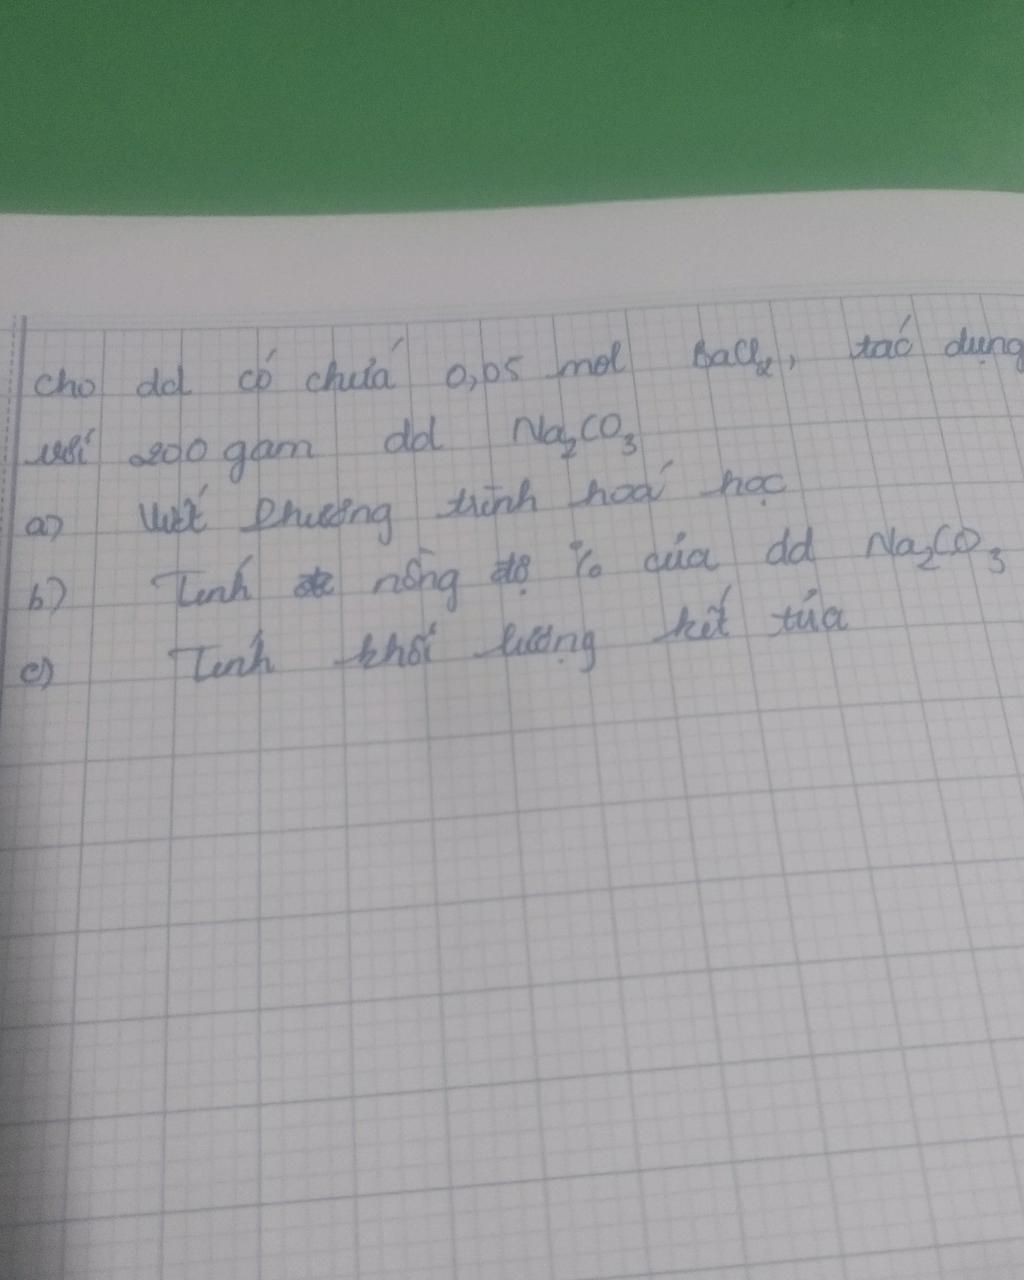 cho dd có chứa 0,05 mol BaCl₂, tác dụng
với 200 gam dd Na₂CO₃
a) Viết Phương trình hoá học
b) Tính nồng độ % của dd Na₂CO₃
c) Tính khối lượng kết tủa